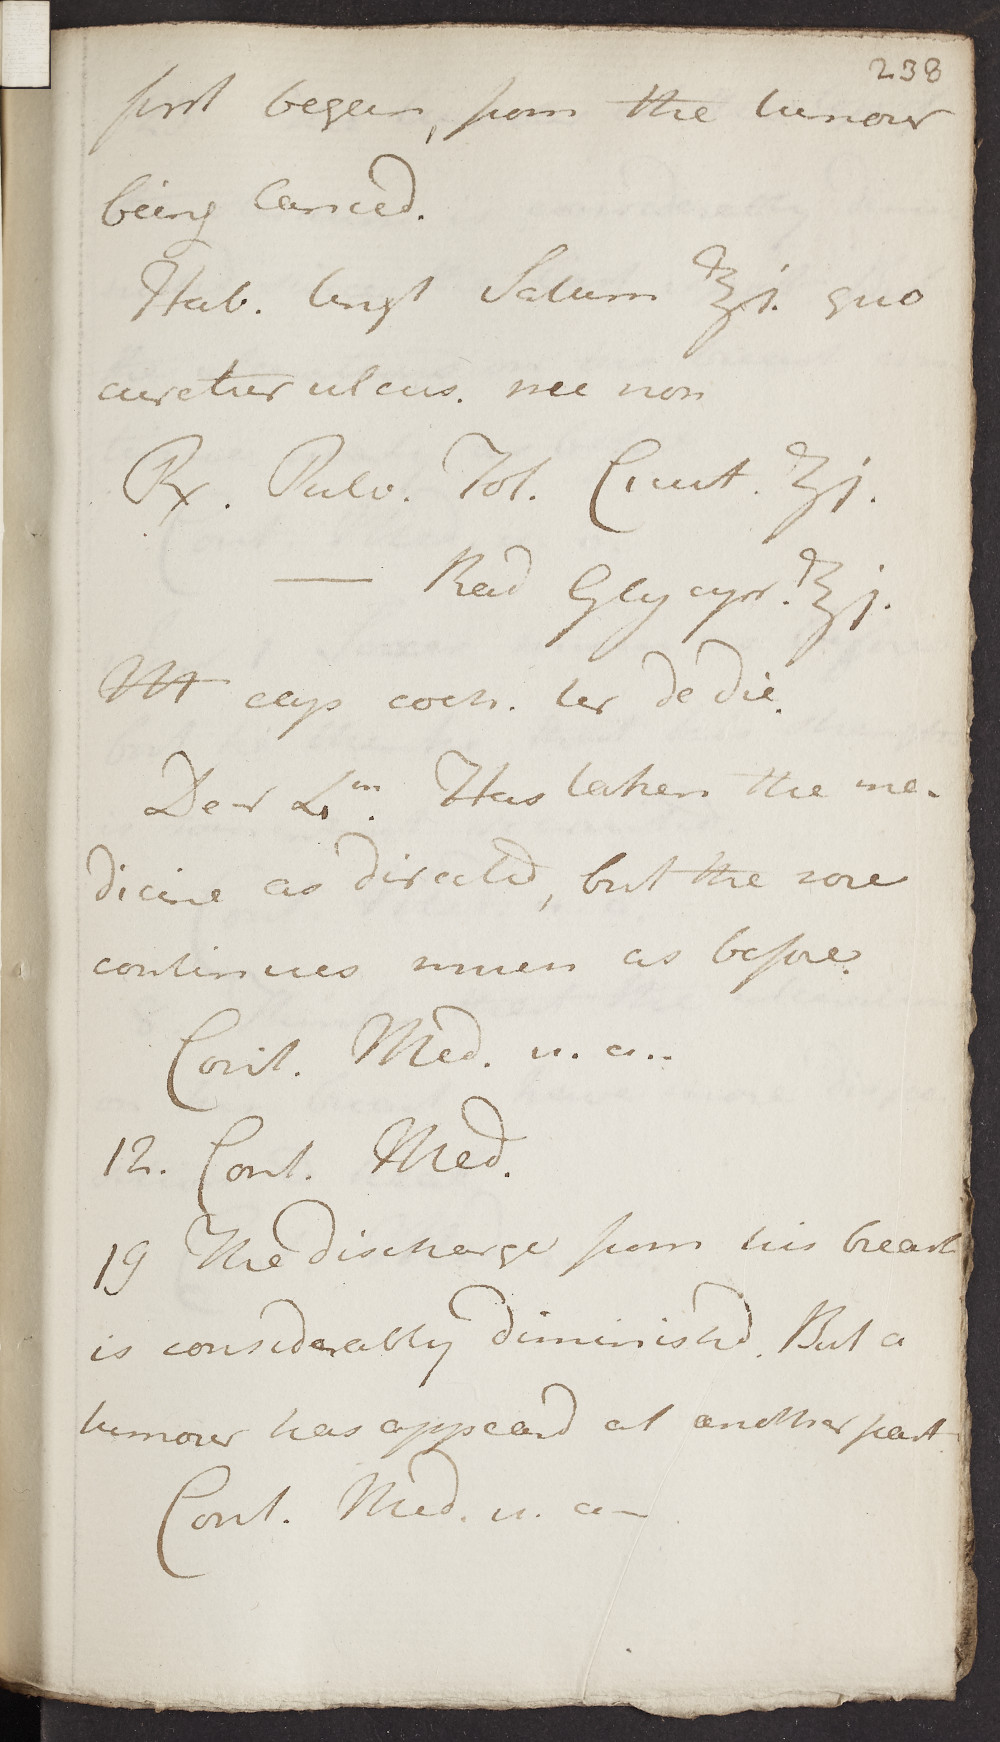 238
first began, from the tumour
being lanced.
Hab. Ungt Saturn ℥j. quo
curetur ulcus. nec non
Rx. Pulv. Fol. Cicut. ℥j.
— Rad Glycyrr. ℥j.
M capt coch. ter de die.
Has taken the me-
dicine as directed, but the sore
continues much as before.
Cont. Med. u. a..
12. Cont. Med.
19 The discharge from his breast
is considerably diminishd. But a
tumour has appeard at another part
Cont. Med. u. a—